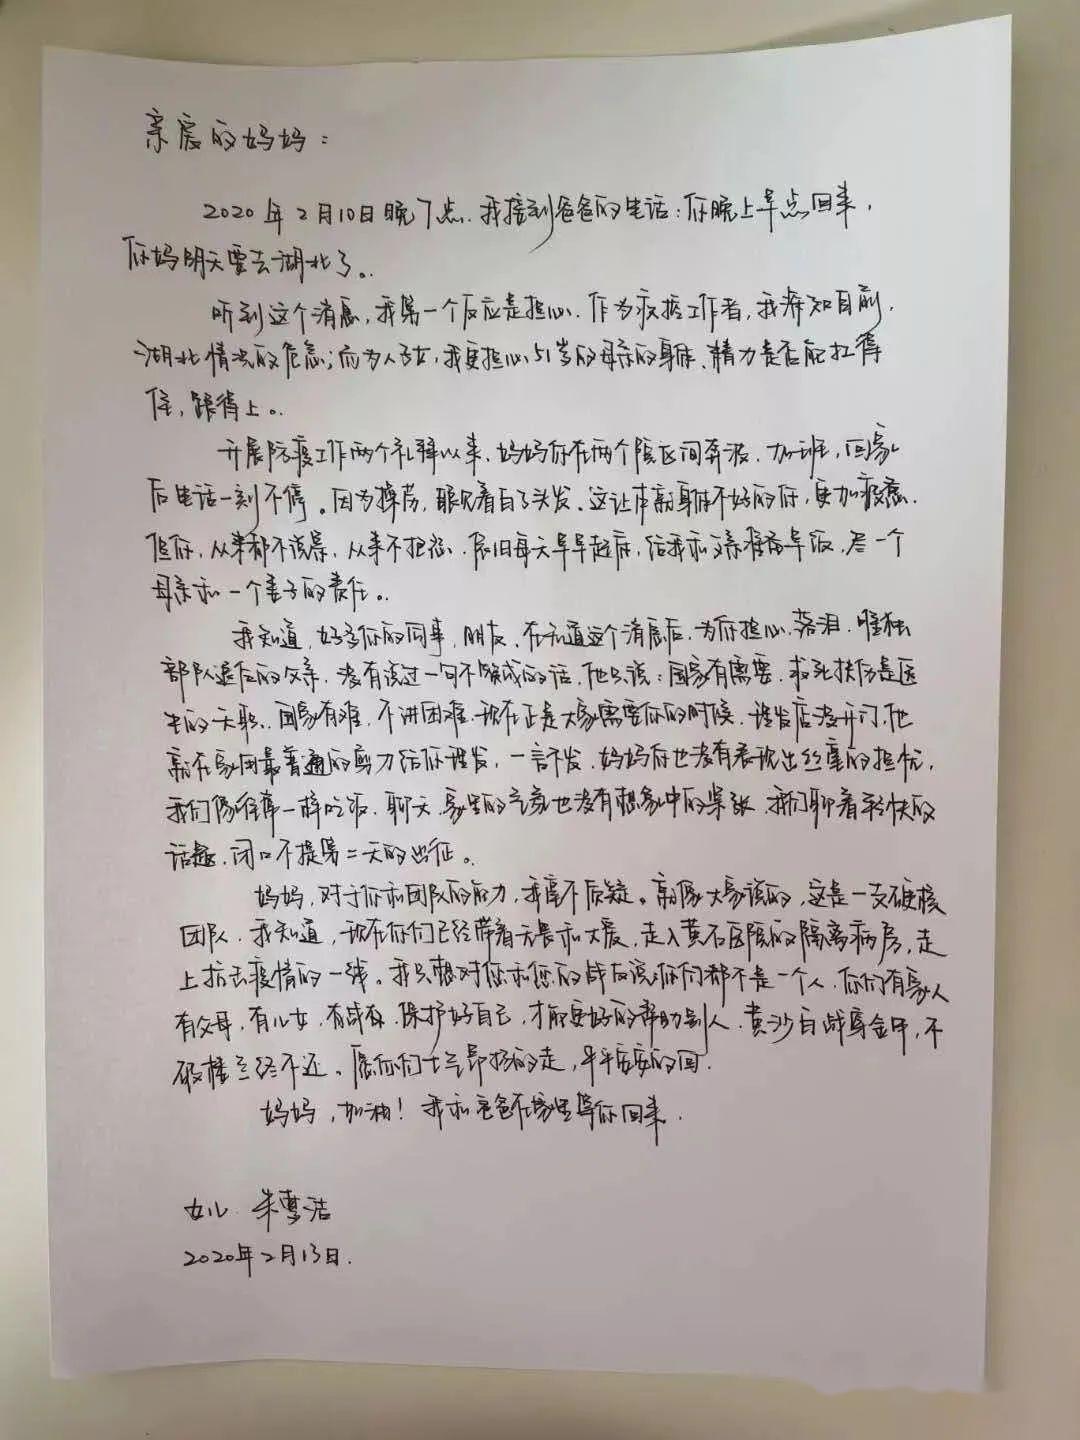 亲爱的妈妈：
2020年2月10日晚7点，我接到爸爸的电话：你晚上早点回来，
你妈明天要去湖北了。
听到这个消息，我第一个反应是担心。作为疫控工作者，我深知目前
湖北情况的危急；而为人子女，我更担心51岁的母亲的身体、精力是否能扛得
住，跟得上。
开展防疫工作两个礼拜以来，妈妈你在两个院区间奔波、加班，回家
后电话一刻不停。因为操劳，眼见着白了头发。这让本就身体不好的你，更加疲惫。
但你，从来都不说累，从来不抱怨。依旧每天早早起床，给我和父亲准备早饭，尽一个
母亲和一个妻子的责任。
我知道，好多你的同事，朋友，在知道这个消息后，为你担心、落泪。唯独
部队退伍的父亲，没有说过一句不赞成的话，他只说：国家有需要，救死扶伤是医
生的天职。国家有难，不讲困难。现在正是大家需要你的时候。理发店没开门，他
就在家用最普通的剪刀给你理发，一言不发。妈妈你也没有表现出丝毫的担忧，
我们像往常一样吃饭、聊天，家里的气氛也没有想象中的紧张，我们聊着轻快的
话题，闭口不提第二天的出征。
妈妈，对于你和团队的能力，我毫不质疑。就像大家说的，这是一支硬核
团队。我知道，现在你们已经带着无畏和大爱，走入黄石医院的隔离病房，走
上抗击疫情的一线。我只想对您和您的战友说：你们都不是一个人，你们有家人
有父母，有儿女，有战友。保护好自己，才能更好的帮助别人。黄沙百战穿金甲，不
破楼兰终不还。愿你们士气昂扬的走，平平安安的回。
妈妈，加油！我和爸爸在家里等你回来。
女儿 朱 洁
2020年2月13日.